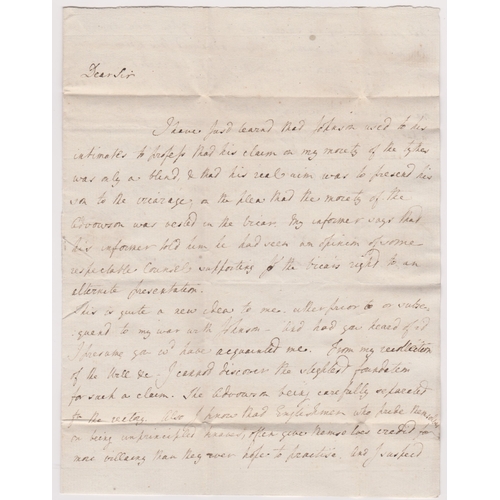 Dear Sir
I have just learnd that Johnson used to his
intimates to profess that his claim on my moiety of the tythes
was only a blind, & that his real aim was to present his
son to the vicarage, on the plea that the moiety of the
advowson was vested in the vicar. My informer says that
his informer told him he had seen an opinion of some
respectable Counsel supporting the vicar's right to an
alternate presentation.
This is quite a new idea to me, either prior to or subse-
quend to my war with Johnson - had had you heard of it
I presume you wd have acquainted me. From my recollection
of the &c. I cannot discover the slightest foundation
for such a claim. The Advowson being carefully separated
to the rectory. Also I know that Englishmen who pride themselves
on being unprincipled knaves, often give themselves credit for
more villainy than they ever hope to practise, and I suspect